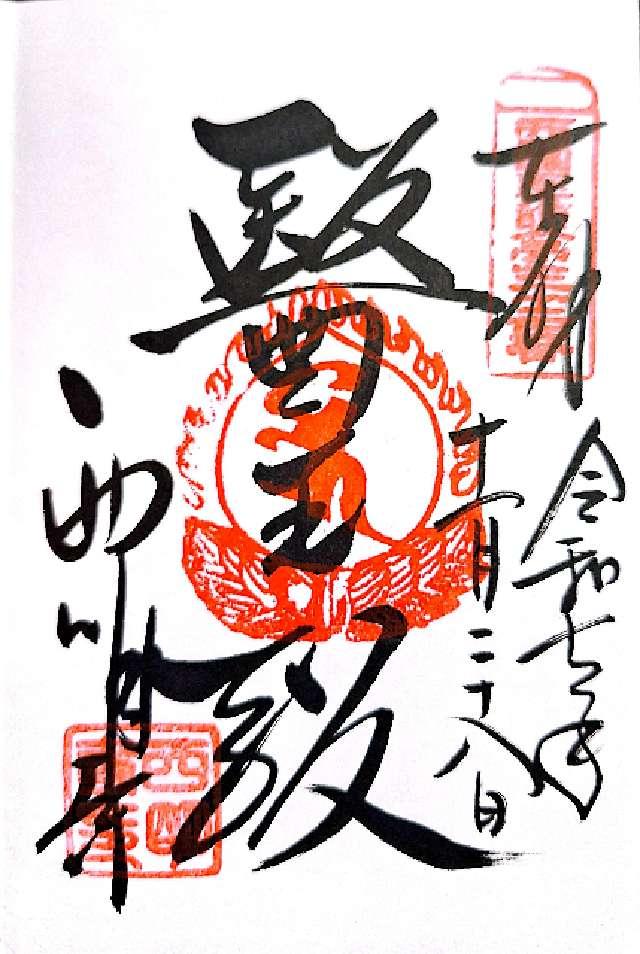 奉拝
令和七年
十一月二十八日
醫王殿
西明寺